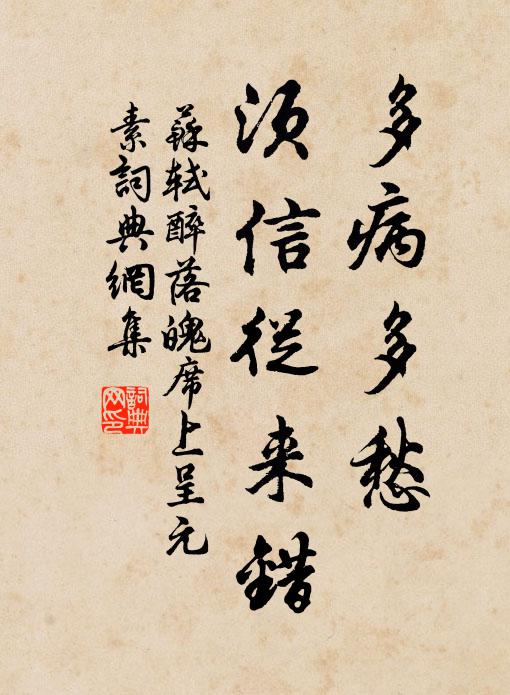 多病多愁
須信從来錯
蘇軾醉落魄席上呈元
素詞典網集
詞典
网印